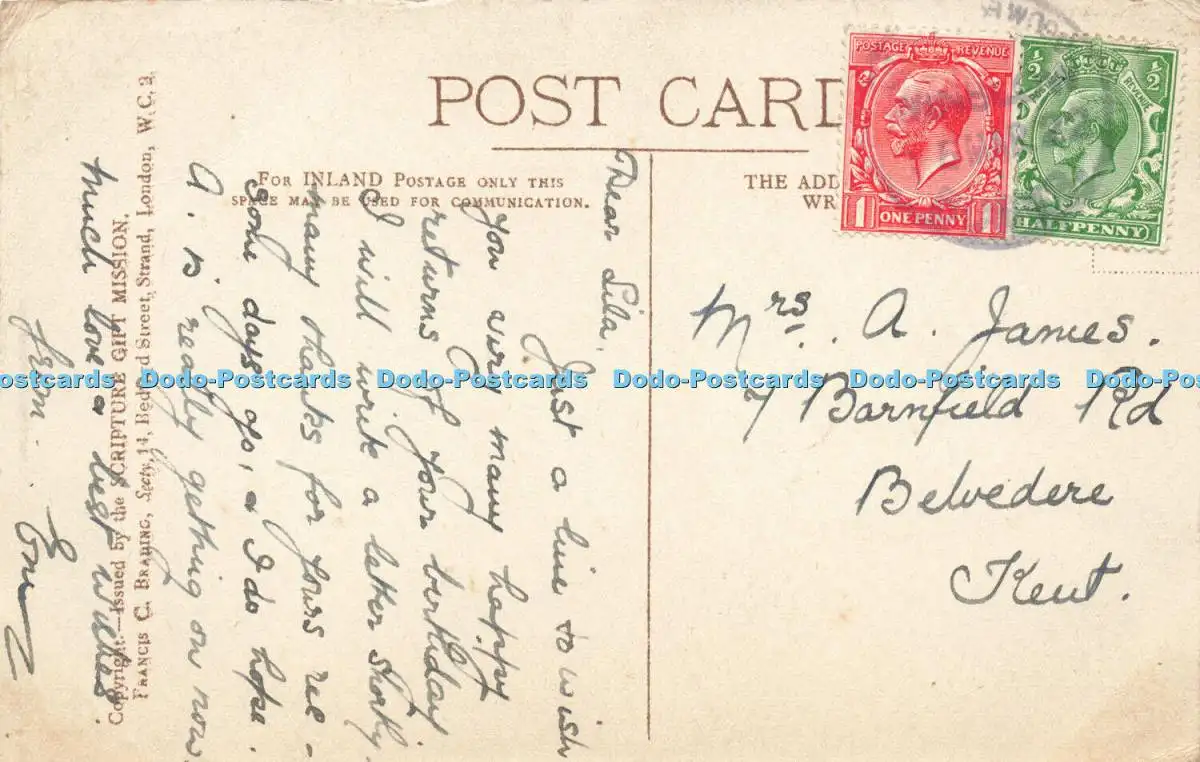 POST CARD
FOR INLAND POSTAGE ONLY THIS
SPACE MAY BE USED FOR COMMUNICATION.
THE ADD
WR
POSTAGE REVENUE
1 ONE PENNY 1
½ ½
REVENUE
HALFPENNY
Dear Lila,
Just a line to wish
you very many happy
returns of your birthday
I will write a letter shortly
many thanks for yours rec-
some days ago, & I do hope
A. is really getting on now.
much love & best wishes.
from
Mrs. A. James.
7 Barnfield Rd
Belvedere
Kent.
Copyright.—Issued by the SCRIPTURE GIFT MISSION,
FRANCIS C. BRADING, Secty, 14, Bedford Street, Strand, London, W.C.2.
Dodo-Postcards Dodo-Postcards Dodo-Postcards Dodo-Postcards Dodo-Postcards Dodo-Postcards